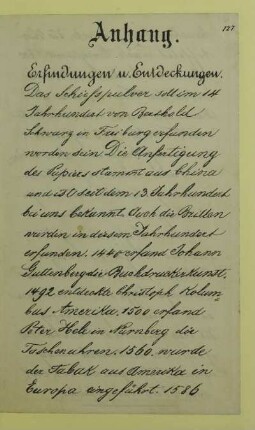 127
Anhang.
Erfindungen u. Entdeckungen.
Das Schießpulver soll im 14
Jahrhundert von Berthold
Schwarz in Freiburg erfunden
worden sein Die Anfertigung
des Papiers stammt aus China
und ist seit dem 13. Jahrhundert
bei uns bekannt. Auch die Brillen
wurden in diesem Jahrhundert
erfunden. 1440 erfand Johann
Guttenberg die Buchdruckerkunst,
1492 entdeckte Christoph Kolum
bus Amerika. 1500 erfand
Peter Hele in Nürnberg die
Taschenuhren. 1560. wurde
der Tabak aus Amerika in
Europa eingeführt. 1586